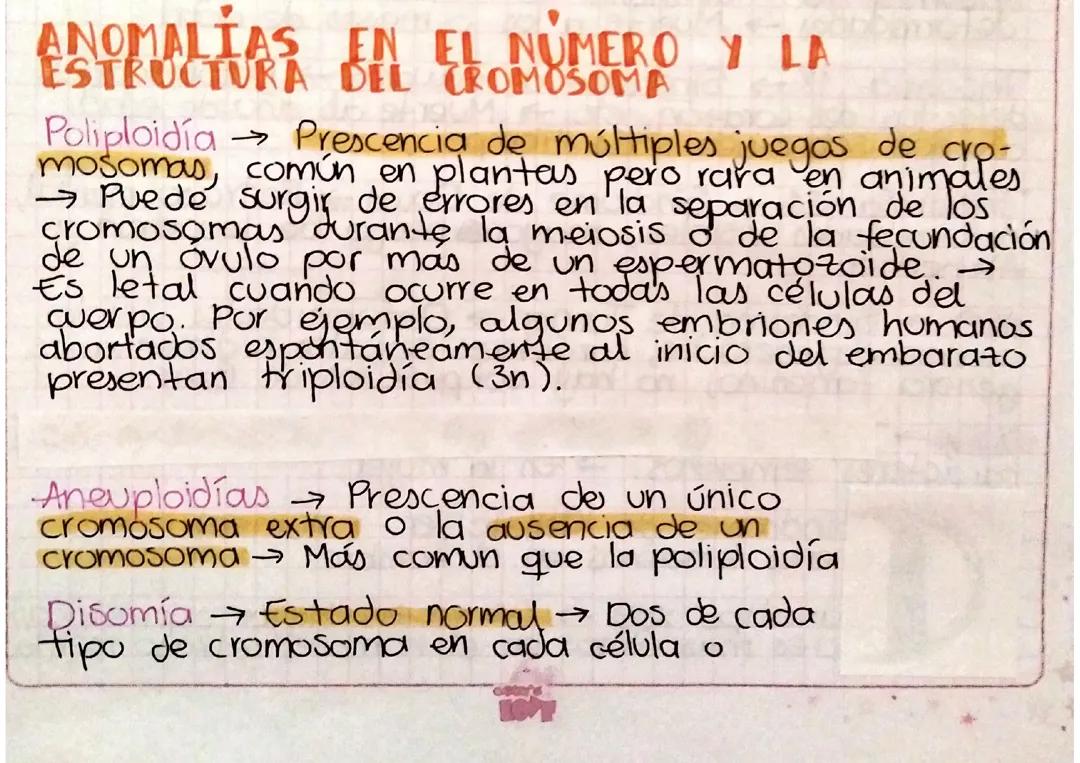 ANOMALÍAS EN EL NÚMERO Y LA
ESTRUCTURA DEL CROMOSOMA
Poliploidía → Prescencia de múltiples juegos de cro-
mosomas, común en plantas pero rara en animales
→ Puede surgir de errores en la separación de los
cromosomas durante la meiosis o de la fecundación
de un óvulo por más de un espermatozoide. →
Es letal cuando ocurre en todas las células del
cuerpo. Por ejemplo, algunos embriones humanos
abortados espontáneamente al inicio del embarazo
presentan triploidía (3n).
Aneuploidías → Prescencia de un único
cromosoma extra o la ausencia de un
cromosoma → Más comun que la poliploidía
Disomía → Estado normal → Dos de cada
tipo de cromosoma en cada célula o